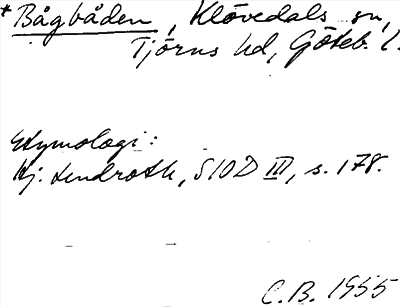 * Bågbåden, Klövedals sn,
Tjörns hd, Göteb. l.
Etymologi:
Hj. Lindroth, SIOD III, s. 178.
C.B. 1955